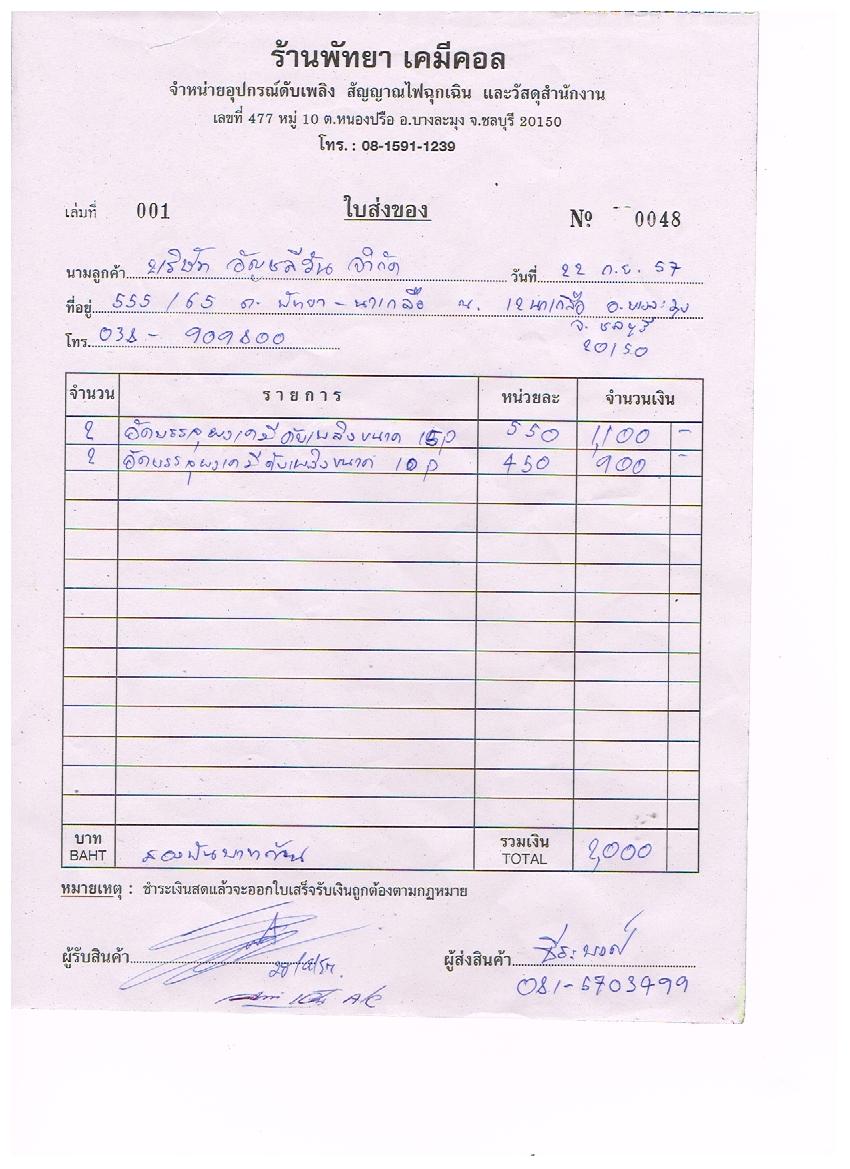 ร้านพัทยา เคมีคอล
จำหน่ายอุปกรณ์ดับเพลิง สัญญาณไฟฉุกเฉิน และวัสดุสำนักงาน
เลขที่ 477 หมู่ 10 ต.หนองปรือ อ.บางละมุง จ.ชลบุรี 20150
โทร. : 08-1591-1239
เล่มที่ 001 ใบส่งของ № 0048
นามลูกค้า บริษัท อัญชลีวัน จำกัด วันที่ 22 ก.ย. 57
ที่อยู่ 555/65 ถ. พัทยา-นาเกลือ อ.บางละมุง
จ. ชลบุรี
โทร. 038-909800 20150
จำนวน รายการ หน่วยละ จำนวนเงิน
2 อัดบรรจุผงเคมีดับเพลิงขนาด 15p 550 1,100 -
2 อัดบรรจุผงเคมีดับเพลิงขนาด 10p 450 900 -
บาท สองพันบาทถ้วน รวมเงิน 2,000
BAHT TOTAL
หมายเหตุ : ชำระเงินสดแล้วจะออกใบเสร็จรับเงินถูกต้องตามกฎหมาย
ผู้รับสินค้า ผู้ส่งสินค้า
081-5703499